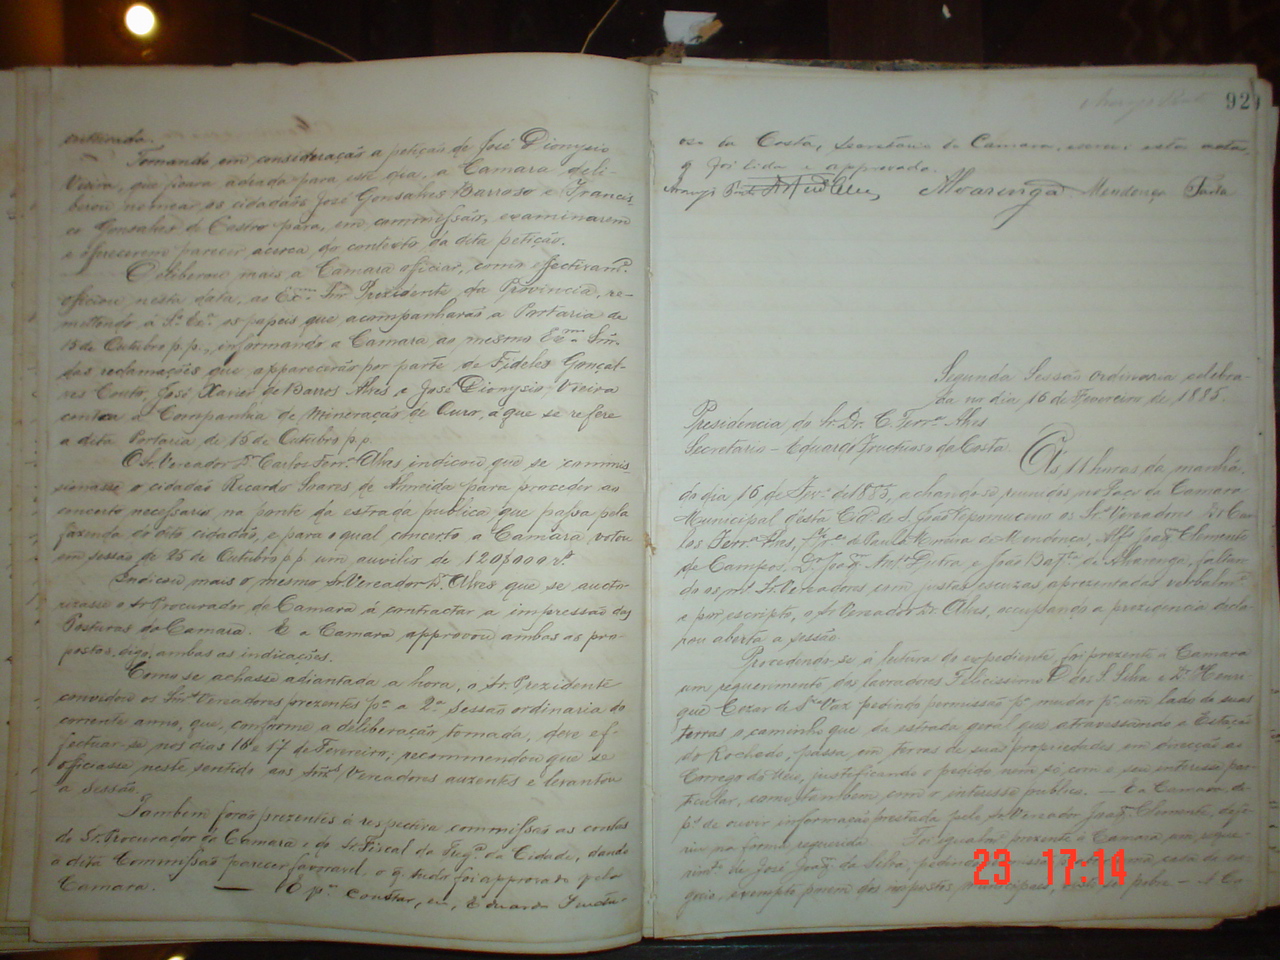 inteirada.
Tomando em consideração a petição de José Dionysio
Vieira, que ficara adiada para este dia, a Camara deli-
berou nomear os cidadãos José Gonsalves Barroso e Francis-
co Gonsalves de Castro para, em commissão, examinarem
e offerecerem parecer acerca do contexto da dita petição.
Deliberou mais a Camara officiar, como effectivam.e
officiou nesta data, ao Ex.mo Snr Prezidente da Provincia, re-
mettendo á S.a Ex.a os papeis que acompanharão a Portaria de
15 de Outubro p.p., informando a Camara ao mesmo Ex.mo Snr.
das reclamações que apparecerão por parte de Fidelis Gonçal-
ves Couto, José Xavier de Barros Alves e José Dionysio Vieira
contra a Companhia de Mineração de Ouro, á que se refere
a dita Portaria de 15 de Outubro p.p.
O Sr. Vereador D.r Carlos Ferr.a Alves indicou que se commis
sionasse o cidadão Ricardo Soares de Almeida para proceder ao
concerto necessario na ponte da estrada publica que passa pela
fazenda do dito cidadão, e para o qual concerto a Camara votou
em sessão de 25 de Outubro p.p. um auxilio de 120$000 r.s
Indicou mais o mesmo Sr. Vereador D.r Alves que se auctor-
izasse o Sr Procurador da Camara á contractar a impressão das
Posturas da Camara. E a Camara approvou ambas as pro-
postas, digo, ambas as indicações.
Como se achasse adiantada a hora, o Sr. Prezidente
convidou os Snr.s Vereadores prezentes p.a a 2.a sessão ordinaria do
corrente anno, que, conforme a deliberação tomada, deve ef-
fectuar-se nos dias 16 e 17 de Fevereiro; recommendou que se
officiasse neste sentido aos Snr.s Vereadores auzentes e levantou
a sessão.
Tambem forão prezentes á respectiva commissão as contas
do Sr. Procurador da Camara e do Sr Fiscal da Freg.a da Cidade, dando
a dita Commissão parecer favoravel, o q. tudo foi approvado pela
Camara. — E p.a constar, eu, Eduardo Fructu-
929
oso da Costa, Secretario da Camara, escrevi esta acta,
q foi lida e approvada.
Araujo Alvarenga Mendonça Faria
Segunda Sessão ordinaria celebra-
da no dia 16 de Fevereiro de 1885.
Presidencia do Sr. Dr. C. Ferr.a Alves
Secretario - Eduardo Fructuoso da Costa
Ás 11 horas da manhã
do dia 16 de Fev.o de 1885, achando-se reunidos no Paço da Camara
Municipal d'esta Cid.e de S. João Nepomuceno os Sr.s Vereadores Dr Car-
los Ferr.a Alves, Fr.co de Paula Moreira de Mendonça, Alf.s Joaq. Clemente
de Campos, Dr Joaq. Ant.o Dutra e João Bap.ta de Alvarenga, faltan-
do os m.s Sr. Vereadores com justas escuzas apresentadas verbalm.e
e por escripto, o Sr Vereador Dr. Alves, occupando a prezidencia decla-
rou aberta a sessão
Procedendo-se á leitura do expediente, foi prezente á Camara
um requerimento dos lavradores Felicissimo de S. Silva e Dr Henri-
que Cezar de S. Vaz pedindo permissão p.a mudar p.a um lado de suas
terras o caminho que da estrada geral que atravessando a Estação
do Rochedo, passa em terras de suas propriedades em direcção ao
Corrego do Meio, justificando o pedido nem só com o seu interesse par-
ticular, como tambem com o interesse publico. — E a Camara, de-
p.s de ouvir informação prestada pelo Sr Vereador Joaq. Clemente, defe-
rio na forma requerida. Foi igualm. prezente á Camara um reque-
rim.to de José Joaq. da Silva, pedindo casa de ne-
gocio, exempto porem dos impostos municipaes, pobre — A Ca-
23 17:14